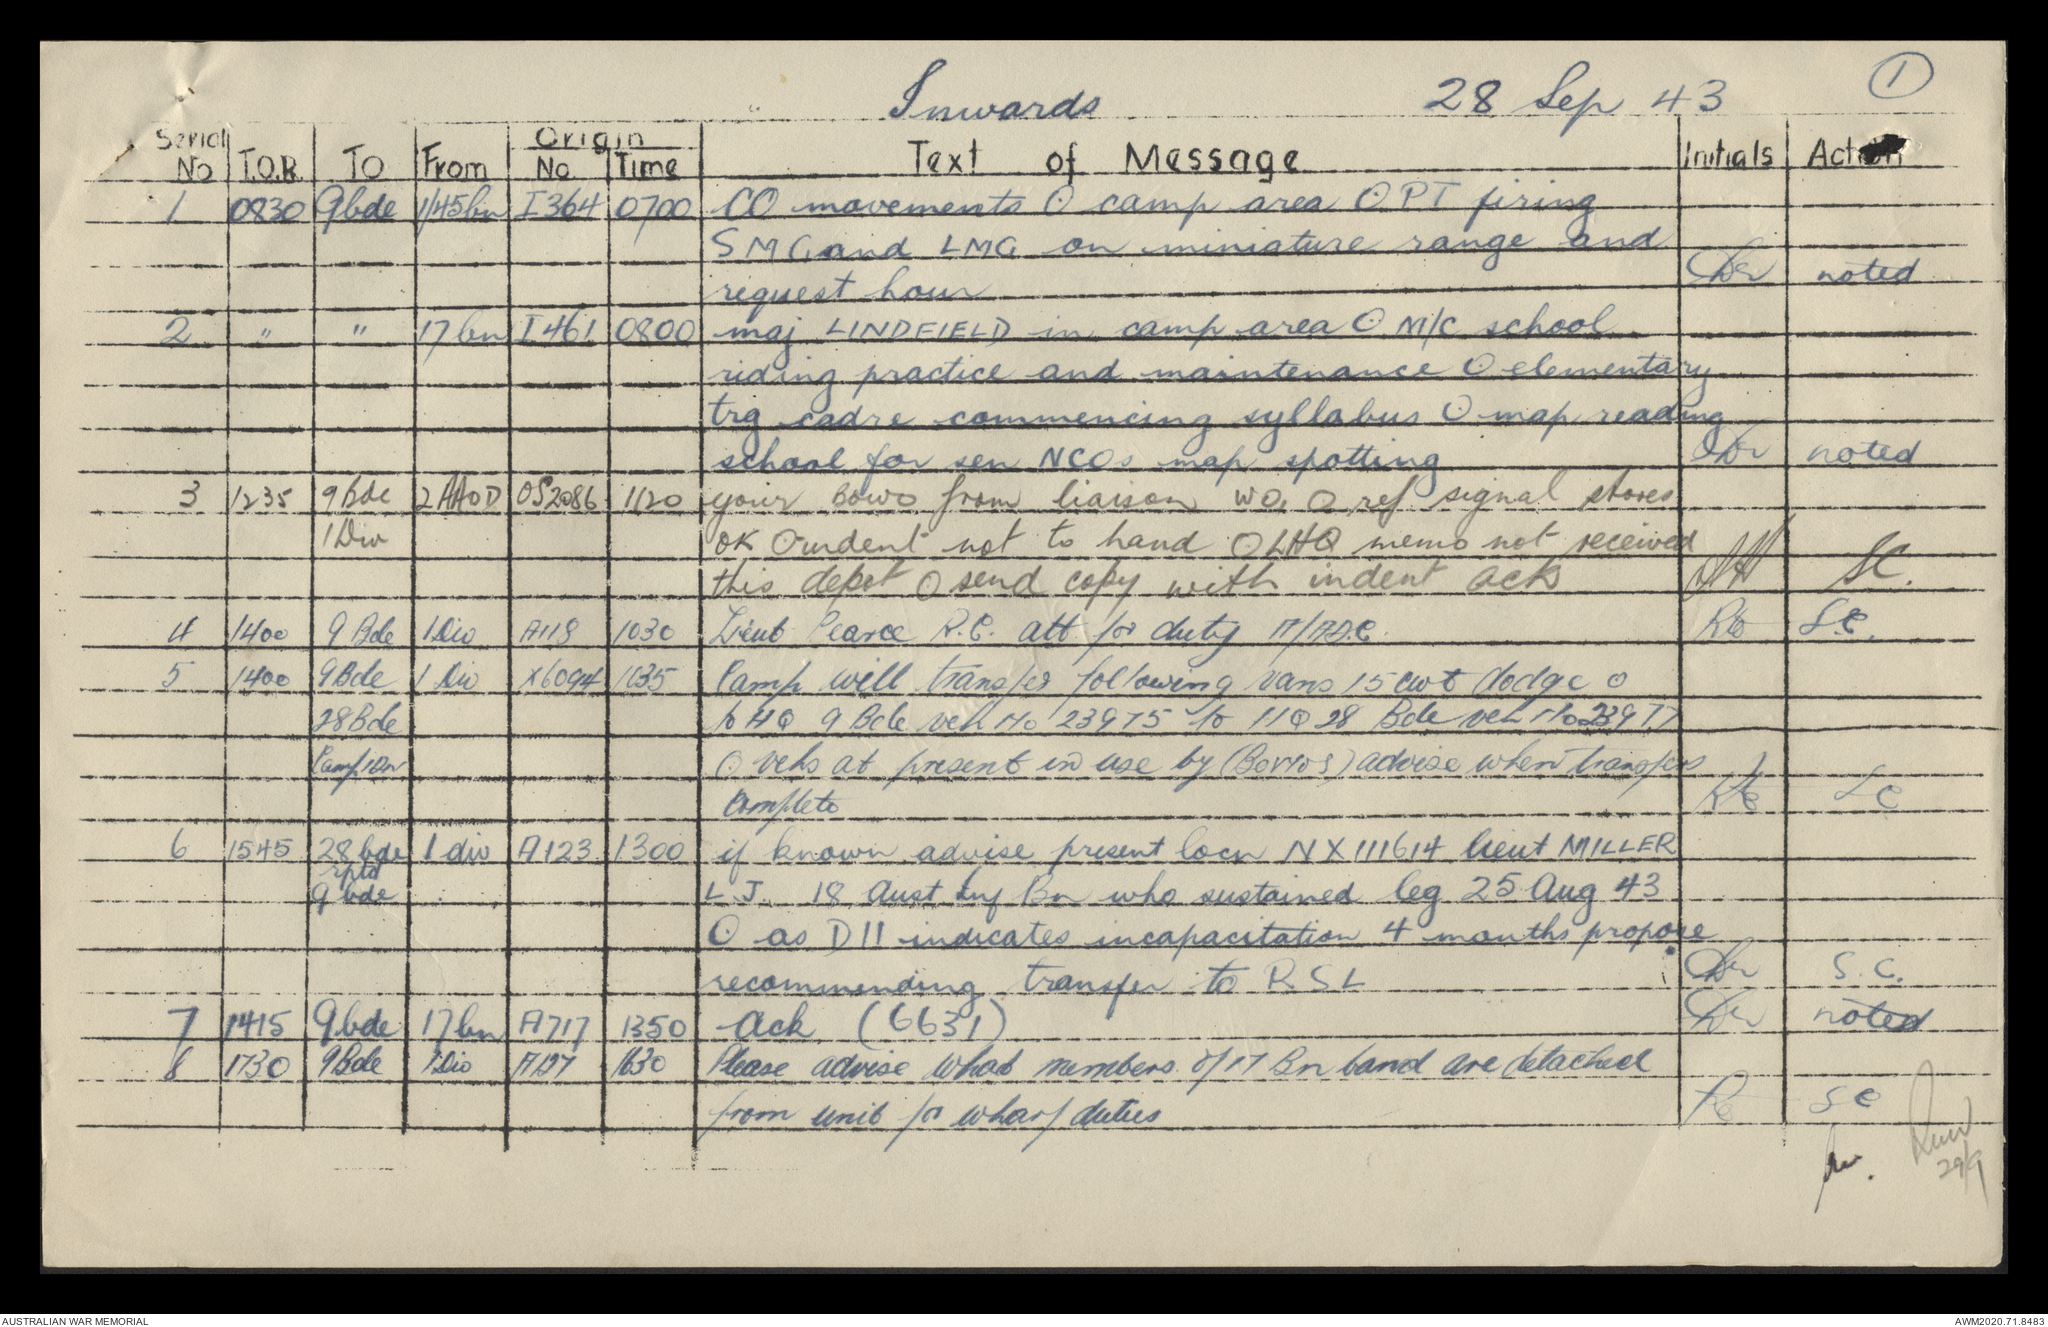 Inwards 28 Sep 43 1
Origin
Serial No T.O.R. TO From No. Time Text of Message Initials Action
1 0830 9bde 1/45bn I364 0700 CO movements O camp area O PT firing
SMG and LMG on miniature range and
request hour noted
2 " " 17bn I461 0800 maj LINDFIELD in camp area O M/C school
riding practice and maintenance O elementary
trg cadre commencing syllabus O map reading
school for sen NCOs map spotting noted
3 1235 9 Bde 2 AAOD OS2086 1120 your from liaison WO, O ref signal stores
1 Div OK O indent not to hand O LHQ memo not received
this depot O send copy with indent ack SC.
4 1400 9 Bde 1 Div A118 1030 Lieut Pearce R.C. att for duty S.C.
5 1400 9Bde 1 Div X6094 1035 Camp will transfer following vans 15 cwt dodge O
28 Bde to HQ 9 Bde veh No 23975 to HQ 28 Bde veh No 23977
Camp 1Div O vehs at present in use by advise when transfers
complete SC
6 1545 28 bde 1 div A123 1300 if known advise present locn NX111614 lieut MILLER
rptd
9 bde L.J. 18 Aust Inf Bn who sustained leg 25 Aug 43
O as D11 indicates incapacitation 4 months propose
recommending transfer to RSL S.C.
7 1415 9bde 17bn A717 1350 Ack (6631) noted
8 1730 9Bde 1Div A127 1630 Please advise what members of 17 Bn band are detached
from unit for wharf duties SC
29/9
AUSTRALIAN WAR MEMORIAL AWM2020.71.8483